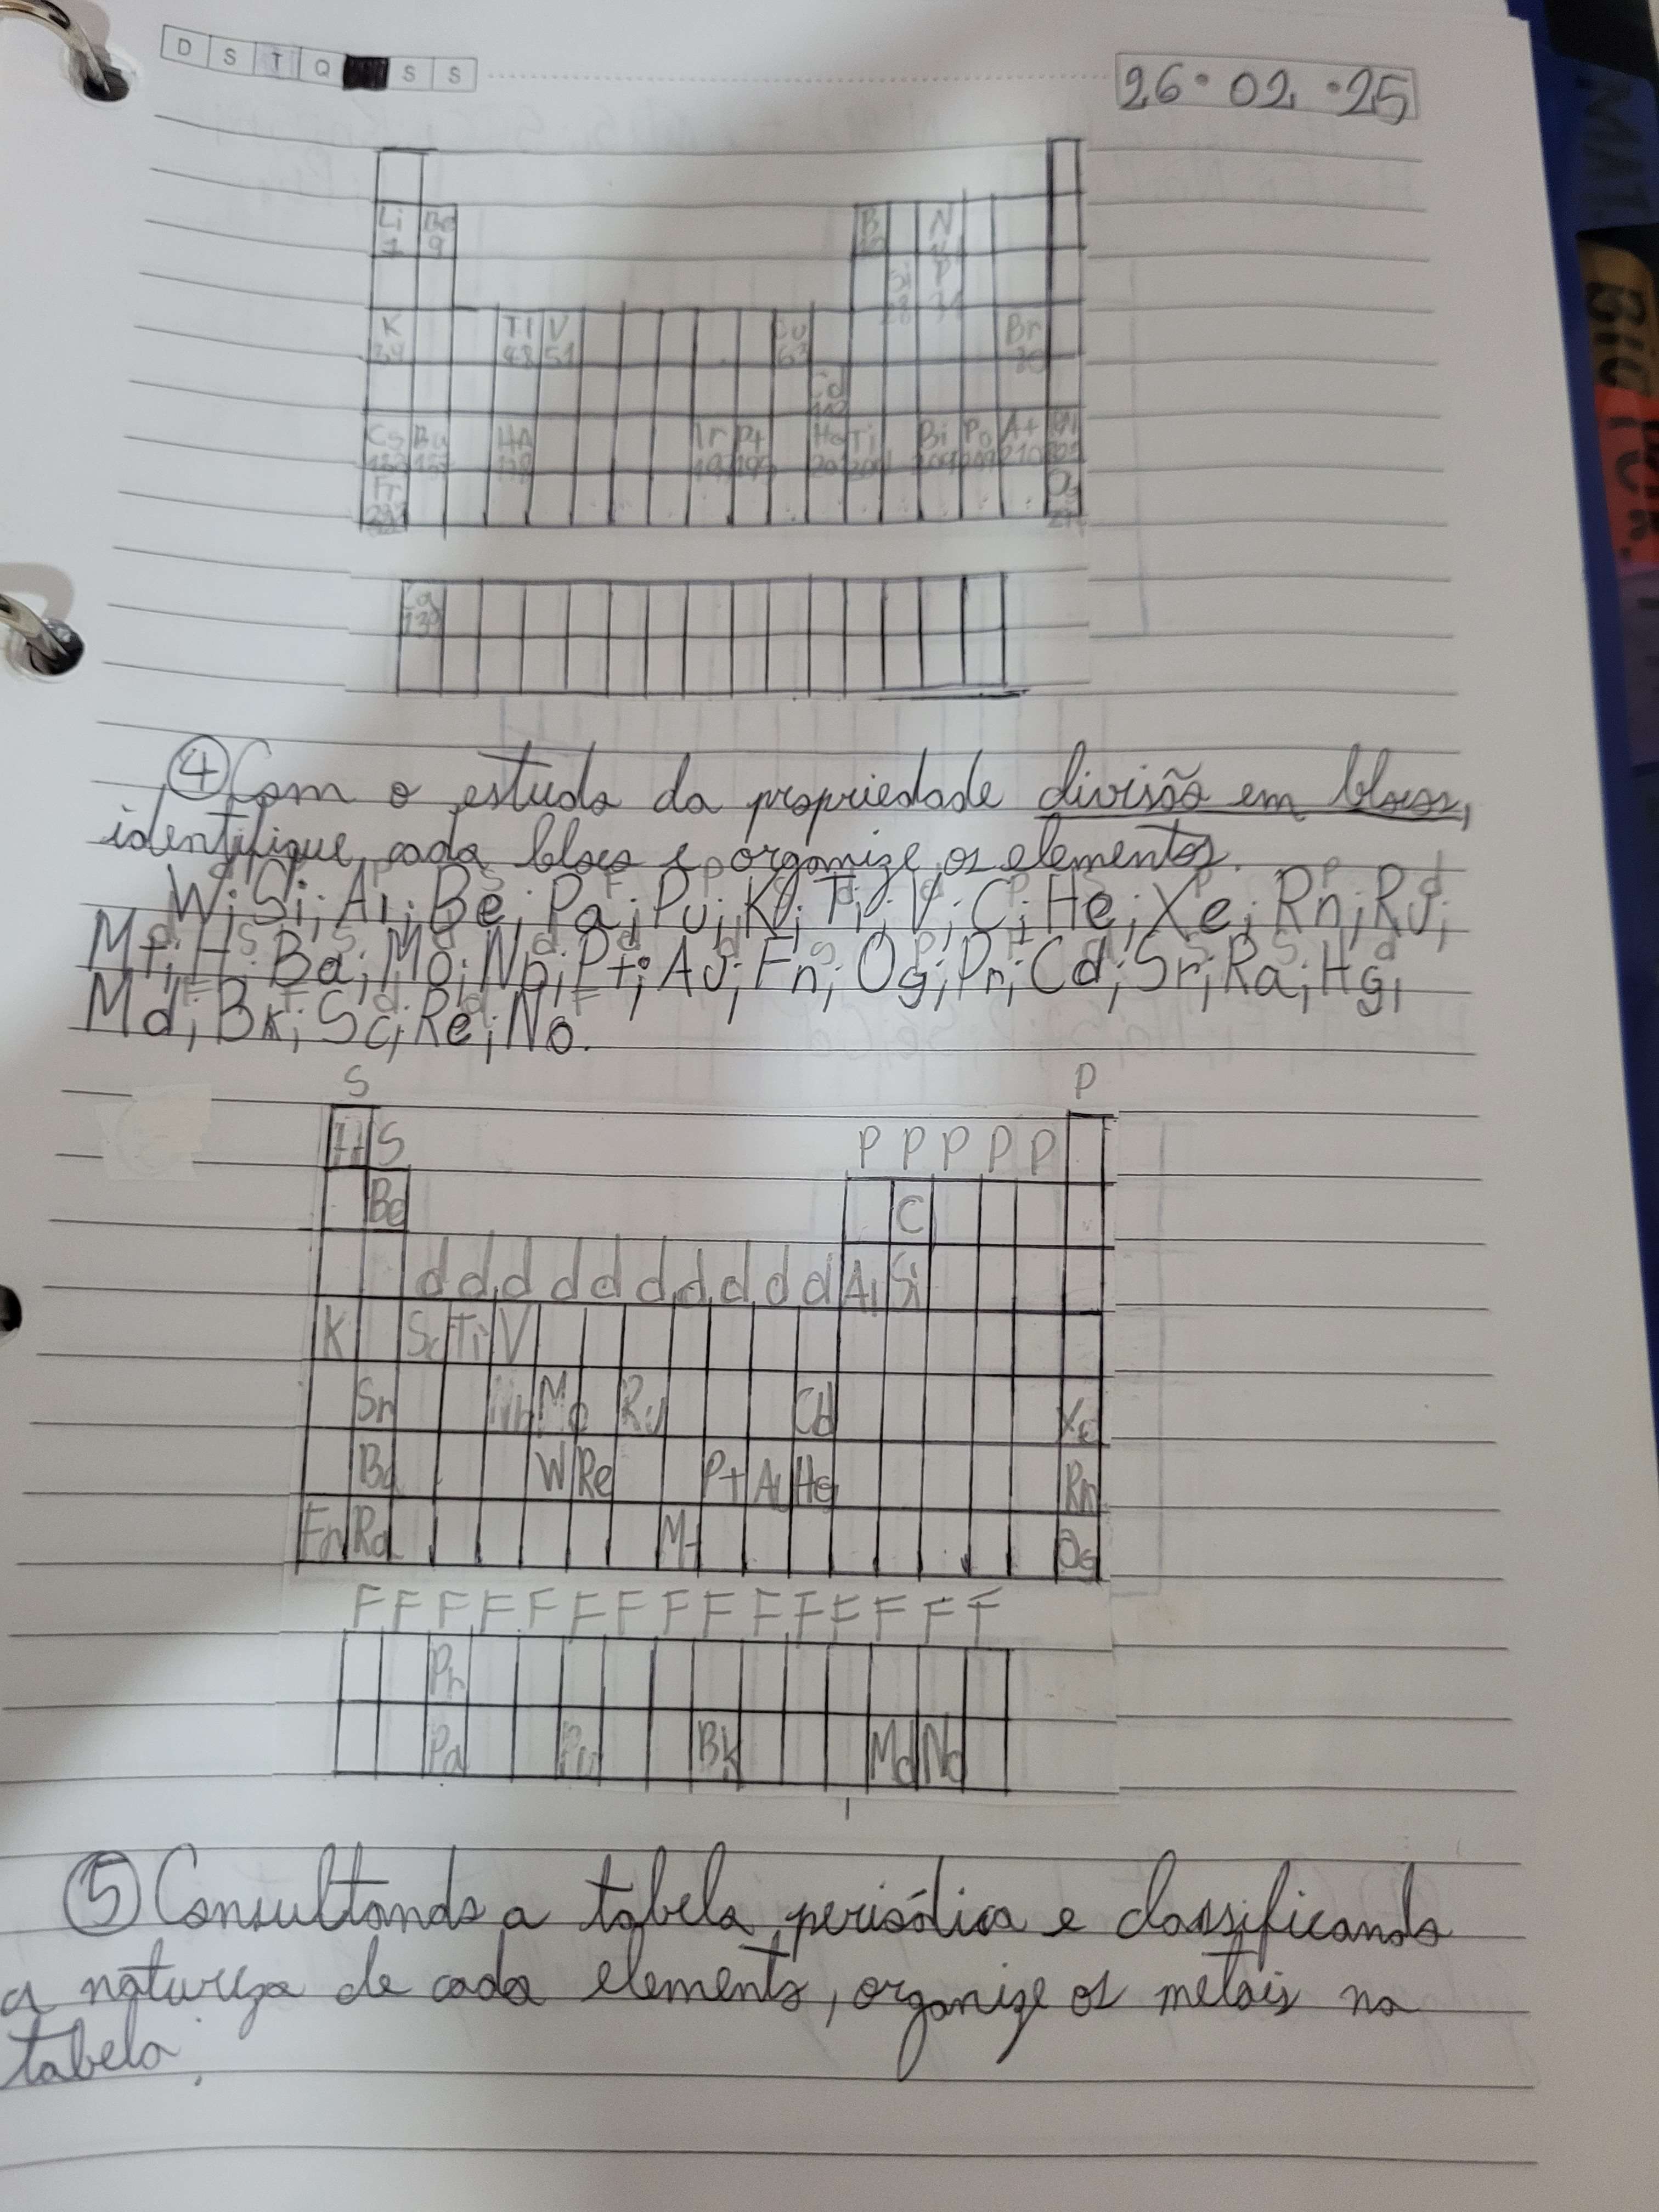 D S T Q S S
26 · 02 · 25
Li Be B N
7 9
Si P
28 31
K Ti V Cu Br
39 48 51 63 80
Cd
112
Cs Ba Ir Pt Bi Po At
Fr Og
④ Com o estudo da propriedade divisão em blocos,
identifique cada bloco e organize os elementos.
W; Si; Al; Be; Pa; Pu; K; Ti; V; C; He; Xe; Rn; Ru;
Mt; H; Ba; Mo; Nb; Pt; Au; Fr; Og; Pr; Cd; Sr; Ra; Hg;
Md; Bk; Sc; Re; No.
S P
H S P P P P P
Be C
d d d d d d d d d d Al Si
K Sc Ti V
Sr Nb Mo Ru Cd Xe
Ba W Re Pt Au Hg Rn
Fr Ra Mt Og
F F F F F F F F F F F F F F F
Pr
Pa Pu Bk Md No
⑤ Consultando a tabela periódica e classificando
a natureza de cada elemento, organize os metais na
tabela.
MAT.